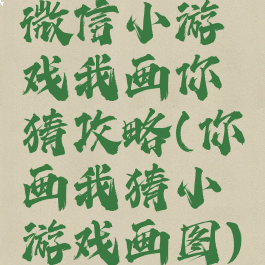 微信小游
戏我画你
猜攻略(你
画我猜小
游戏画图)